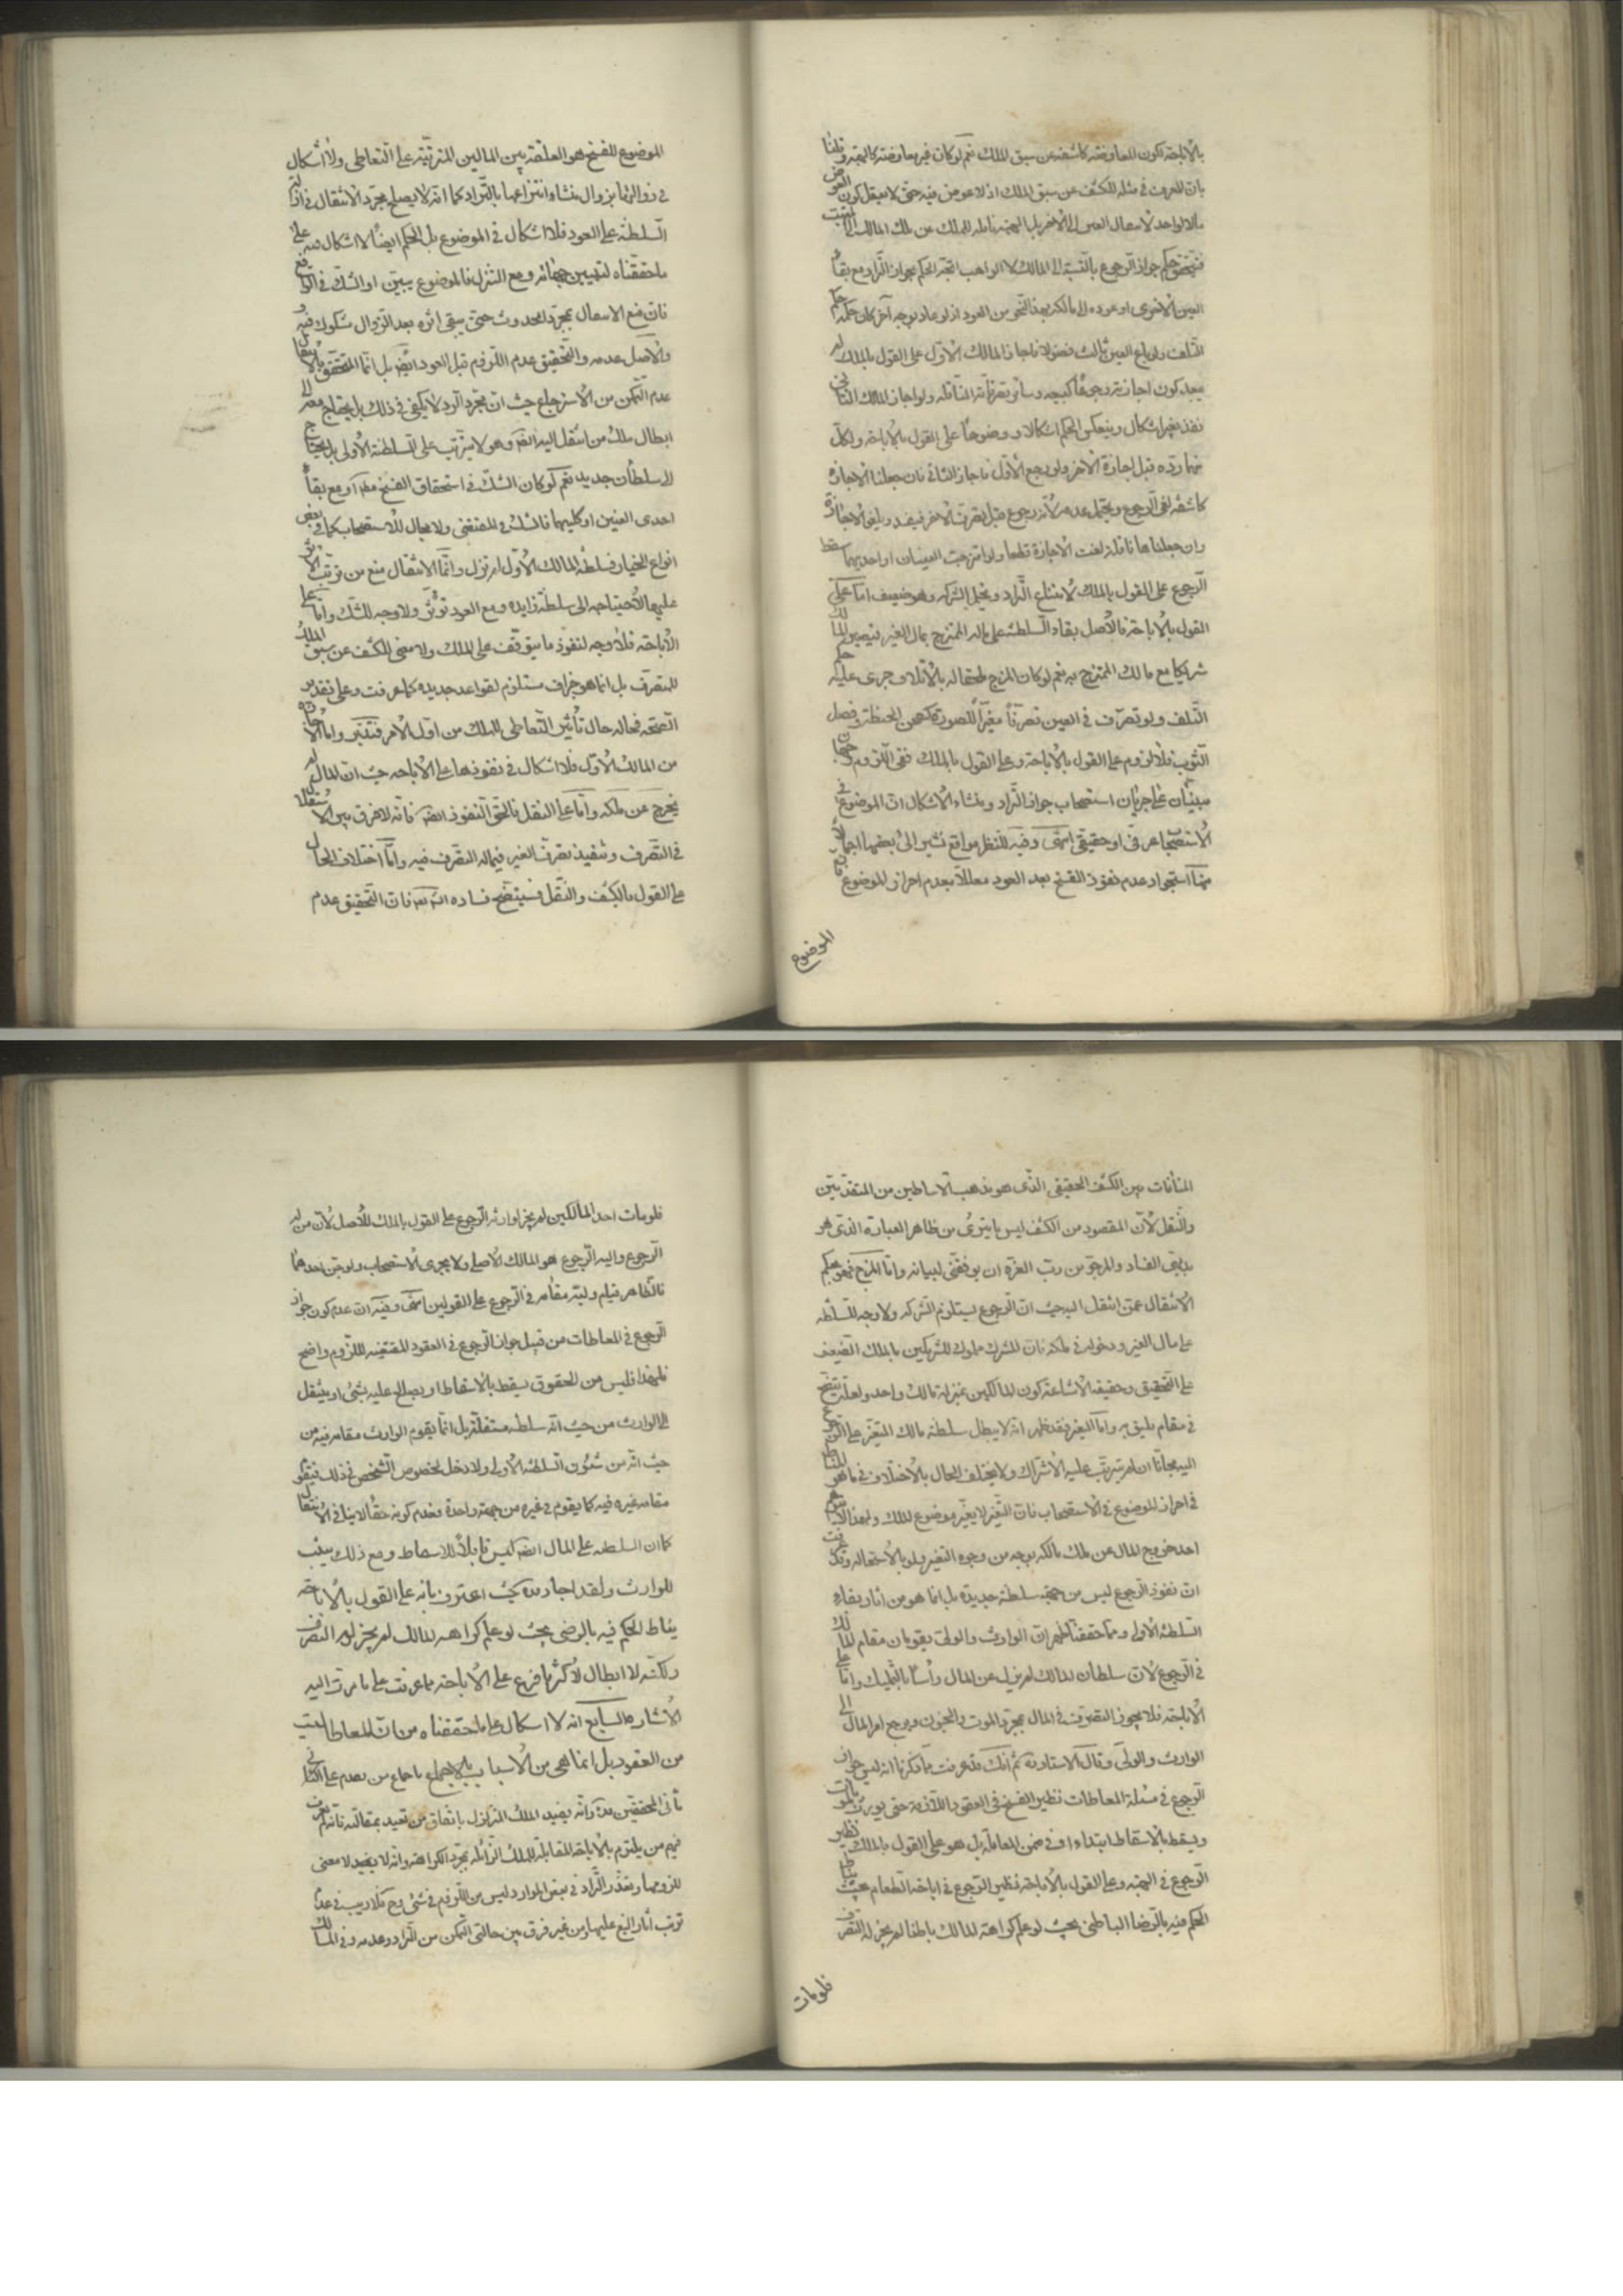 بالاباحة لكون المعاوضة كاشفة عن سبق الملك نعم لو كان فيه معاوضة كالهبة وقلنا
بان التصرف في مثله للكشف عن سبق الملك اذ لا عوض فيه حتى لا يعقل كون العوض
مالا لواحد لانتقال العين الى الاخر بل الهبة ناقلة للملك عن ملك المالك الى المتهب
فيتحقق حكم جواز الرجوع بالنسبة الى المالك لا الواهب اتجه الحكم بجواز التراد مع بقاء
العين الاخرى او عوده الى مالكه بهذا النحو من العود اذ لو عاد بوجه آخر كان حكمه حكم
التلف ولو باع العين ثالث فضولا فاجاز المالك الاول على القول بالملك لم
يبعد كون اجازته رجوعا كبيعه وسائر تصرفاته الناقلة ولو اجاز المالك الثاني
نفذ بغير اشكال وينعكس الحكم اشكالا ووضوحا على القول بالاباحة ولكل
منهما رده قبل اجازة الاخر ولو رجع الاول فاجاز الثاني فان جعلنا الاجازة
كاشفة لغى الرجوع ويحتمل عدمه لأنه رجوع قبل تصرف الاخر فينفذ ويلغو الاجازة
وان جعلناها ناقلة لغت الاجازة قطعا ولو امتزجت العينان او احديهما سقط
الرجوع على القول بالملك لامتناع التراد ويحتمل الشركة وهو ضعيف اما على
القول بالاباحة فالاصل بقاء السلطنة على ماله الممتزج بمال الغير فيصير المالك
شريكا مع مالك الممتزج به نعم لو كان المزج ملحقا له بالاتلاف جرى عليه حكم
التلف ولو تصرف في العين تصرفا مغيرا للصورة كطحن الحنطة وفصل
الثوب فلا لزوم على القول بالاباحة وعلى القول بالملك ففي اللزوم وجهان
مبنيان على جريان استصحاب جواز التراد ومنشاء الاشكال ان الموضوع في
الاستصحاب عرفي او حقيقي انتهى وفيه للنظر مواقع نشير الى بعضها اجمالا
منها استجواد عدم نفوذ الفسخ بعد العود معللا بعدم احراز الموضوع فان
الموضوع
الموضوع للفسخ هو العلقة بين المالين المترتبة على التعاطى ولا اشكال
في زوالها بزوال منشاء انتزاعها بالتراد كما انه لا يصلح مجرد الانتقال في ازالة
السلطنة على العود فلا اشكال في الموضوع بل الحكم ايضا لا اشكال فيه على
ما حققناه لتبيين جهاته ومع التنزل فالموضوع يبين او الشك في الواقع
فان منع الانتقال بمجرد الحدوث حتى يبقى اثره بعد الزوال مشكوك فيه و
والاصل عدمه والتحقيق عدم اللزوم قبل العود ايضا بل انما المتحقق بالانتقال
عدم التمكن من الاسترجاع حيث ان مجرد الرد لا يكفى في ذلك بل يحتاج معه الى
ابطال ملك من انتقل اليه ايضا وهو لا يترتب على السلطنة الاولى بل يحتاج
الى سلطان جديد نعم لو كان الشك في استحقاق الفسخ مطلقا او مع بقاء
احدى العينين او كليهما فالشك في المقتضى ولا مجال للاستصحاب كما في بعض
انواع الخيار فسلطنة المالك الاول لم تزل وانما الانتقال منع من ترتب الاثر
عليها لاحتياجه الى سلطنة زايدة ومع العود تؤثر ولا وجه للشك واما على
الاباحة فلا وجه لنفوذ ما يتوقف على الملك ولا معنى للكشف عن سبق الملك
للمتصرف بل انما هو جزاف مستلزم لقواعد جديدة كما عرفت وعلى تقدير
الصحة فحاله حال تأثير التعاطى للملك من اول الامر فتدبر واما الاجازة
من المالك الاول فلا اشكال في نفوذها على الاباحة حيث ان المال لم
يخرج عن ملكه واما على النقل فالحق النفوذ ايضا فانه لا فرق بين الاستقلال
في التصرف وتنفيذ تصرف الغير فيما له التصرف فيه واما اختلاف الحال
على القول بالكشف والنقل فسيتضح فساده انشاء الله فان التحقيق عدم
المنافات بين الكشف الحقيقى الذى هو مذهب الاساطين من المتقدمين
والنقل لان المقصود من الكشف ليس ما يترى من ظاهر العبارة الذى هو
بديهى الفساد والمرجو من رب العزة ان يوفقنى لبيانه واما المزج فهو بحكم
الانتقال عمن انتقل اليه حيث ان الرجوع يستلزم الشركة ولا وجه للسلطنة
على مال الغير ودخوله في ملكه فان المشترك مملوك للشريكين بالملك الضعيف
على التحقيق وحقيقة الاشاعة كون المالكين بمنزلة مالك واحد ولعله يتضح
في مقام يليق به واما التغير فقد ظهر انه لا يبطل سلطنة مالك المتغير على الرجوع
اليه مجانا ان لم يترتب عليه الاشتراك ولا يختلف الحال بالاختلاف في ما هو المناط
في احراز الموضوع في الاستصحاب فان التغير لا يغير موضوع الملك ولهذا لا يتوهم
احد خروج المال عن ملك مالكه بوجه من وجوه التغير ولو بالاستحالة وقد عرفت
ان نفوذ الرجوع ليس من جهة سلطنة جديدة بل انما هو من آثار بقاء
السلطنة الاولى ومما حققنا ظهر ان الوارث والولى يقومان مقام المالك
في الرجوع لان سلطان المالك لم يزل عن المال رأسا بالتمليك واما على
الاباحة فلا يجوز التصرف في المال بمجرد الموت والجنون ويرجع امر المال الى
الوارث والولى وقال الاستاد قده ثم انك قد عرفت مما ذكرنا انه ليس جواز
الرجوع في مسئلة المعاطات نظير الفسخ في العقود اللازمة حتى يورث بالموت
ويسقط بالاسقاط ابتداء او في ضمن المعاملة بل هو على القول بالملك نظير
الرجوع في الهبة وعلى القول بالاباحة نظير الرجوع في اباحة الطعام بحيث يناط
الحكم فيه بالرضا الباطنى بحيث لو علم كراهة المالك باطنا لم يجز له التصرف
فلو مات
فلو مات احد المالكين لم يجز لوارثه الرجوع على القول بالملك للاصل لان من له
الرجوع واليه الرجوع هو المالك الاصلى ولا يجرى الاستصحاب ولو جن احدهما
فالظاهر قيام وليه مقامه في الرجوع على القولين انتهى وفيه ان عدم كون جواز
الرجوع في المعاطات من قبيل جواز الرجوع في العقود المقتضية للزوم واضح
فلهذا فليس من الحقوق يسقط بالاسقاط او يصالح عليه بشئ او ينتقل
الى الوارث من حيث انه سلطنة مستقلة بل انما يقوم الوارث مقامه فيه من
حيث انه من شئون السلطنة الاولى ولا دخل لخصوص الشخص في ذلك فيقوم
مقامه غيره فيه كما يقوم في غيره من جهة واحدة فعدم كونه حقا لا ينافى الانتقال
كما ان السلطنة على المال ايضا ليس قابلا للاسقاط ومع ذلك يثبت
للوارث ولقد اجاد قده حيث اعترف بانه على القول بالاباحة
يناط الحكم فيه بالرضى بحيث لو علم كراهة المالك لم يجز له التصرف
ولكنه لا ابطال لاكثر ما فرع على الاباحة مما عرفت على ما مرت اليه
الاشارة السابع انه لا اشكال على ما حققناه من ان المعاطات ليست
من العقود بل انما هى من الاسباب بالاجماع باجماع من تقدم على الثانى
ثانى المحققين قده وانه يفيد الملك المتزلزل باتفاق من تعبد بمقالته فانه لم نعرف
فيهم من يلتزم بالاباحة المقابلة للملك الزائلة بمجرد الكراهة وانه لا يفيد لا معنى
للزومها وتعذر التراد في بعض الموارد ليس من اللزوم في شئ وح فلا ريب في عدم
ترتب آثار البيع عليها من غير فرق بين حالتى التمكن من التراد وعدمه وفى المسالك